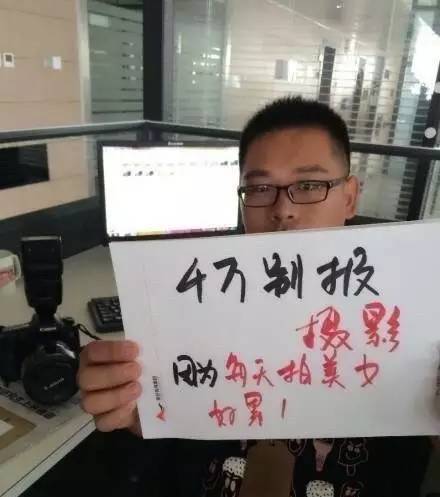 4万别报
摄影
因为每天拍美女
好累!
Canon